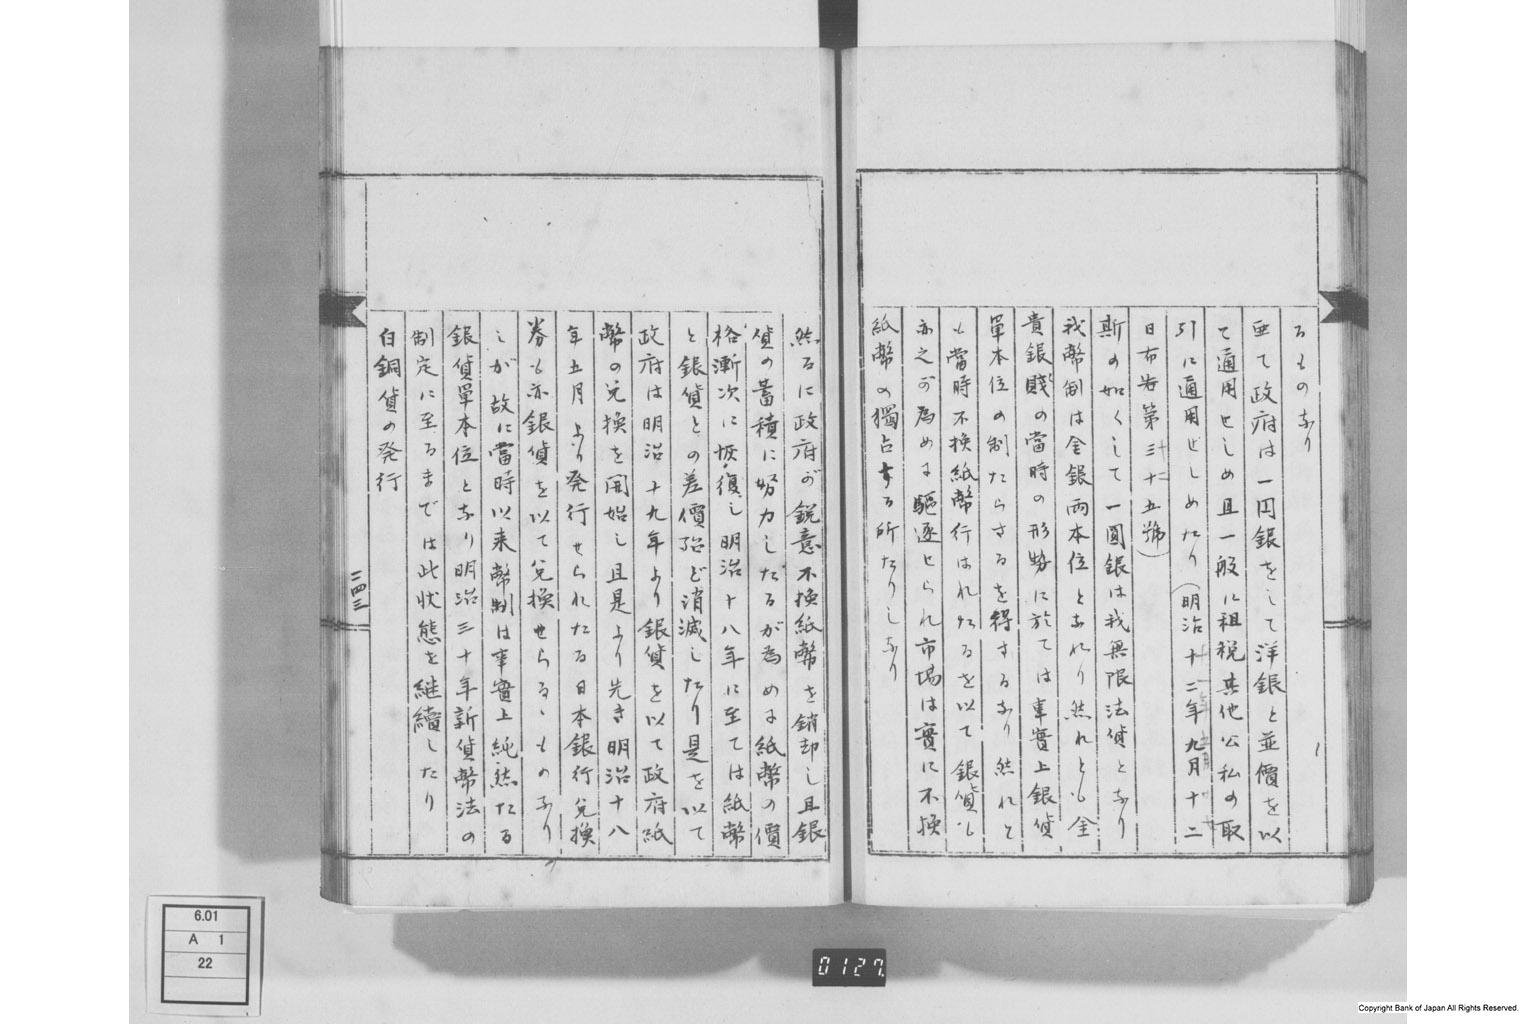 るものなり
亜て政府は一円銀をして洋銀と並價を以
て通用せしめ且一般に租税其他公私の取
引に通用せしめたり（明治十二年九月十二
日布告第三十五號）
斯の如くして一圓銀は我無限法貨となり
我幣制は金銀両本位となれり然れとも金
貴銀賤の當時の形勢に於ては事實上銀貨
單本位の制たらさるを得さるなり然れと
も當時不換紙幣行はれたるを以て銀貨も
亦之が為めに驅逐せられ市場は實に不換
紙幣の獨占する所たりしなり
然るに政府が鋭意不換紙幣を銷却し且銀
貨の蓄積に努力したるが為めに紙幣の價
格漸次に恢復し明治十八年に至ては紙幣
と銀貨との差價殆ど消滅したり是を以て
政府は明治十九年より銀貨を以て政府紙
幣の兌換を開始し且是より先き明治十八
年五月より発行せられたる日本銀行兌換
券も亦銀貨を以て兌換せらるゝものなり
しが故に當時以来幣制は事實上純然たる
銀貨單本位となり明治三十年新貨幣法の
制定に至るまでは此状態を継續したり
白銅貨の発行
二四三
6.01
A 1
22
0127
Copyright Bank of Japan All Rights Reserved.